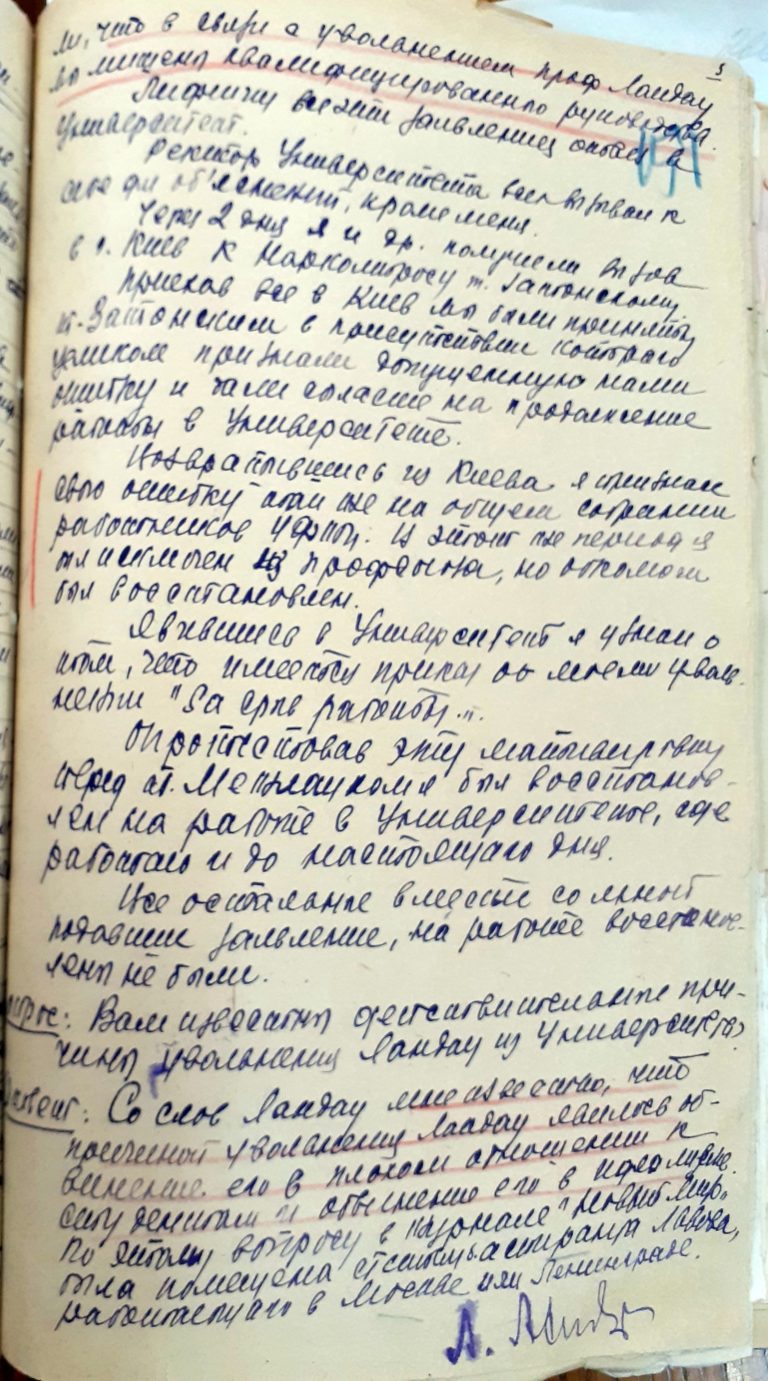 5
ли, что в связи с увольнением проф Ландау
мы лишены квалифицированного руководства.
Лифшиц все эти заявления отнес в
Университет.
Ректор Университета всех вызывал к
себе для об'яснений, кроме меня.
Через 2 дня я и др. получили вызов
в г. Киев к Наркомпросу т. Затонскому.
Приехав все в Киев мы были приняты
т. Затонским в присутствии которого
целиком признали допущенную нами
ошибку и дали согласие на продолжение
работы в Университете.
Возвратившись из Киева я признал
свою ошибку также на общем собрании
работников УФТИ. В этот же период я
был исключен из профсоюза, но обкомом
был восстановлен.
Явившись в Университет я узнал о
том, что имеется приказ об моем уволь-
нении "За срыв работы".
Опротестовав эту мотивировку
перед т. я был восстанов-
лен на работе в Университете, где
работаю и до настоящего дня.
Все остальные вместе со мной
подавшие заявление, на работе восстанов-
лены не были.
Вопрос: Вам известны действительные при-
чины увольнения Ландау из Университета?
Ответ: Со слов Ландау мне известно, что
причиной увольнения Ландау явилось об-
винение его в плохом отношении к
студентам и обвинение его в идеализме.
По этому вопросу в журнале "Новый Мир"
была помещена статья аспиранта Львова,
работающего в Москве или Ленинграде.